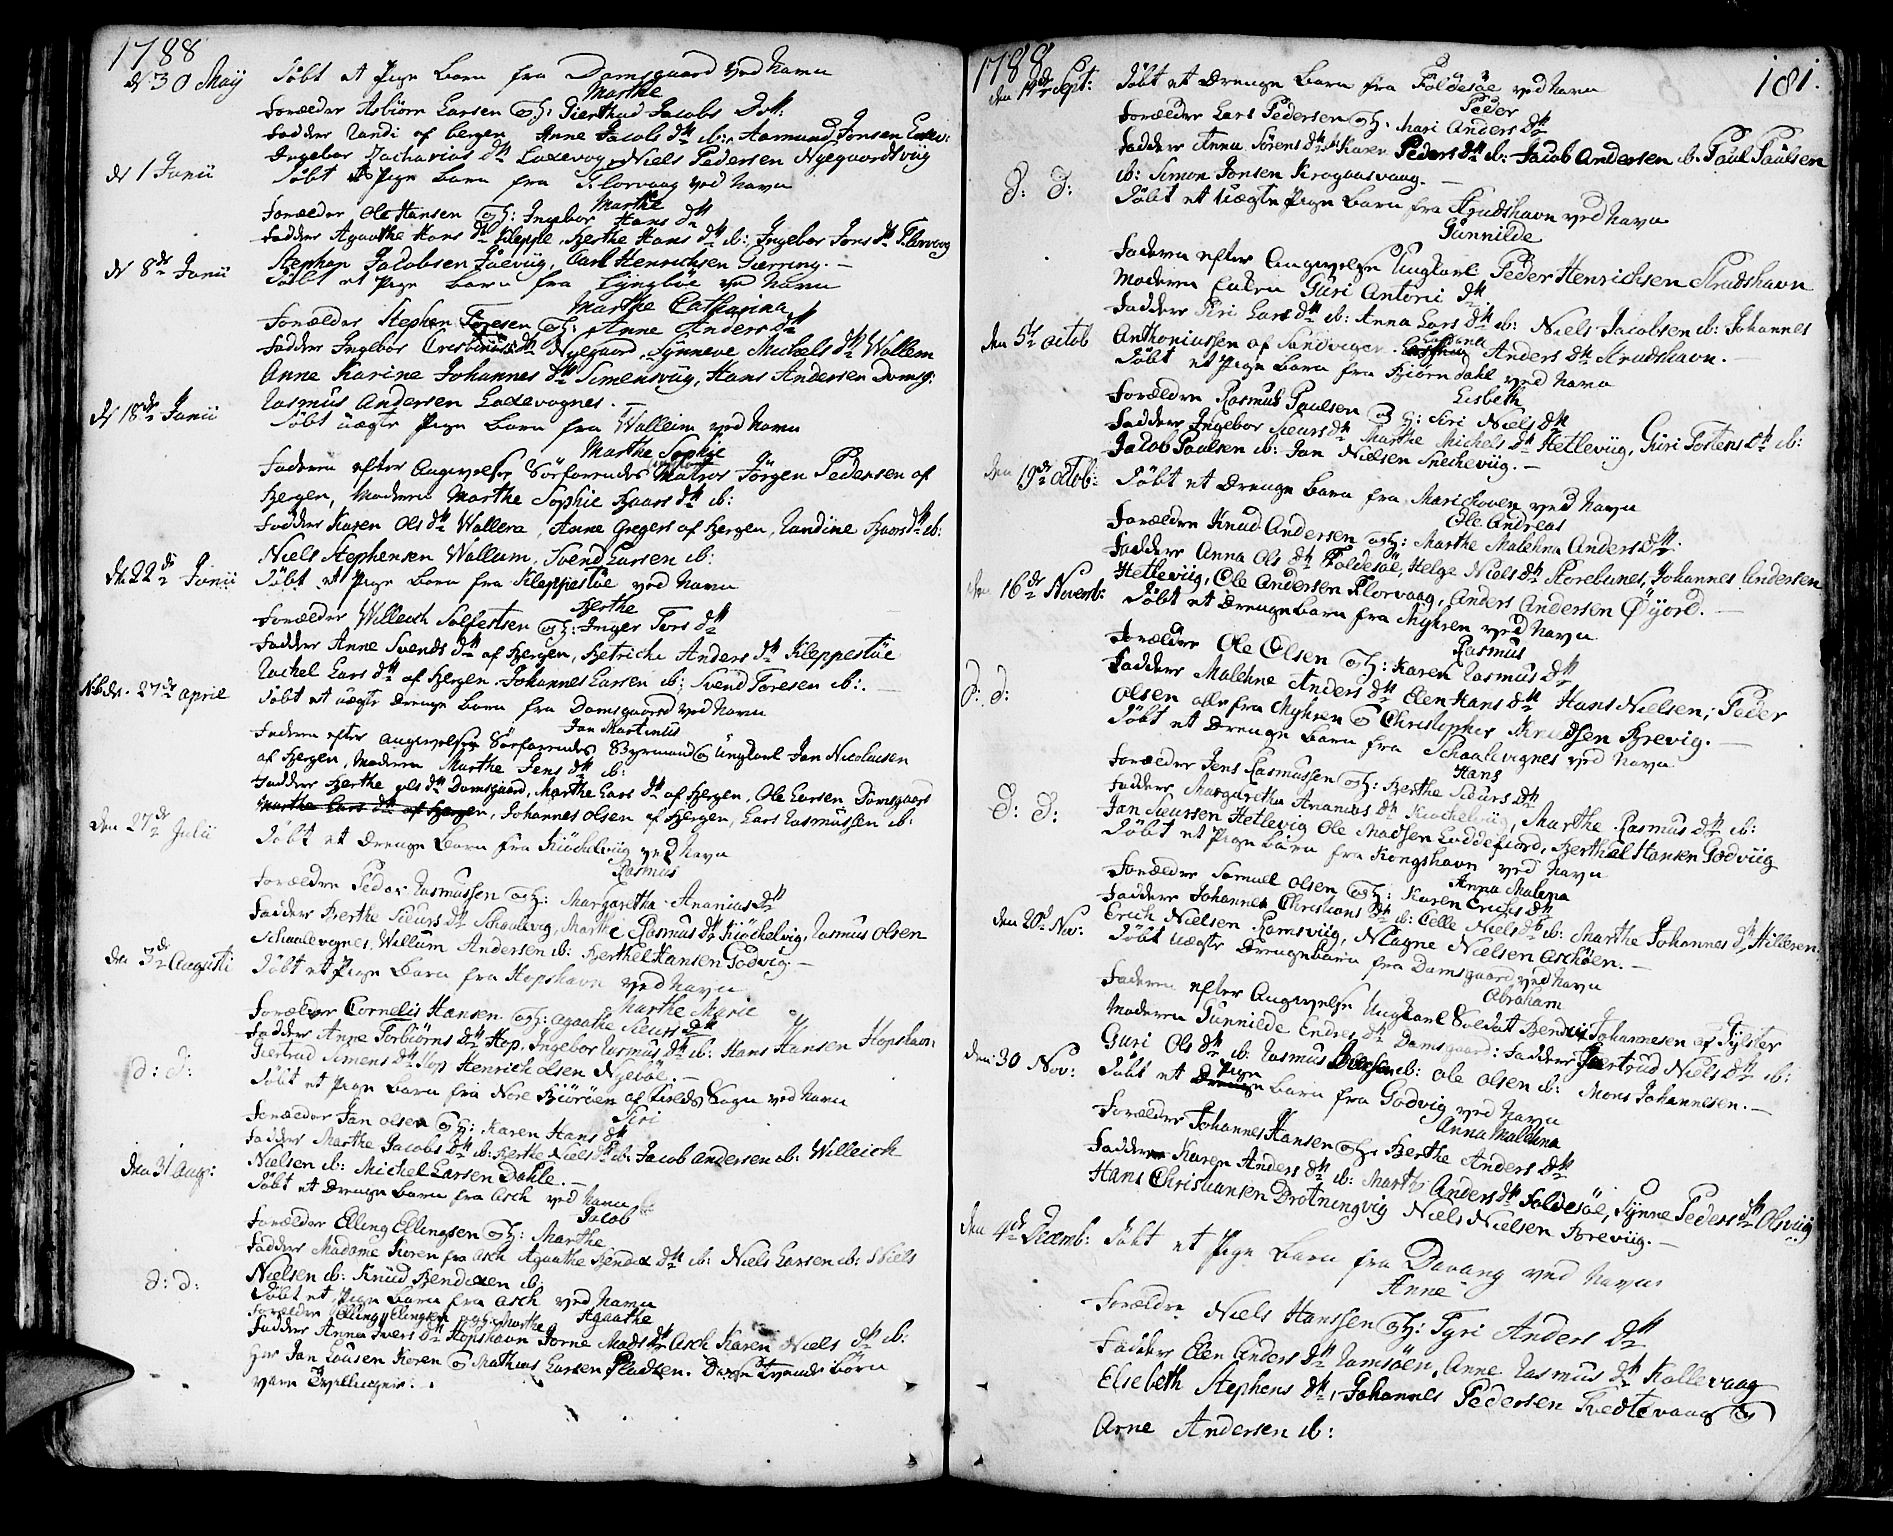 1788
d 30 Maÿ Döbt et Pige Barn fra Damsgaard ved Navn
Marthe
Forælder Asbiörn Larsen og H: Gierthud Jacobs Dtt:
Faddere Randi af bergen Anne Jacobs dtr ib: Aamund Jonsen
Ingebor Zacharias dtr Laxevog, Niels Pedersen Nyegaardsviig
d 1 Junii Döbt et Pige Barn fra Florvaag ved Navn
Marthe
Forælder Ole Hansen og H: Ingebor Hans dtr
Faddere Agaathe Hans dtr Kleppe, Berthe Hans dtr ib: Ingebor Jons dtr Florvog
Stephan Jacobsen, Carl Henrichsen Gierring.
d 8de Junii Döbt et Pige Barn fra Lyngböe ved Navn
Marthe Catharina
Forælder Stephen Toresen og H: Anne Anders dtr
Faddere Ingebor dtr Nyegaard, Synneve Michels dtr Wallem
Anne Karine Johannes dtr Simensviig, Hans Andersen Domsg:
Rasmus Andersen Laxevognes.
d 18de Junii Döbt uægte Pige Barn fra Walleim ved Navn
Marthe Sophie
Faderen efter Angivelse Söefarendes Matros Jörgen Pedersen af
Bergen, Moderen Marthe Sophie Haars dtr ib:
Faddere Karen Ols dtr Wallera, Anne Gregers af Bergen, Randine dtr ib:
Niels Stephensen Wallum, Svend Larsen ib:
den 22de Junii Döbt et Pige Barn fra Kleppestöe ved Navn
Berthe
Forælder Willech Solfestsen og H: Inger Tors dtr
Faddere Anne Svends dtr af Bergen, Anders dtr Kleppestöe
Rachel Lars dtr af Bergen. Johannes Larsen ib: Svend Toresen ib:
Nb: d. 27de April Döbt et uægte Drenge Barn fra Damsgaard ved Navn
Jan Martinus
Faderen efter angivelse Söefarendes og Ungkarl Jan Nicolaisen
af Bergen, Moderen Marthe Jens dtr ib:
Faddere Berthe Ols dtr Domsgaard, Marthe Lars dtr af Bergen, Ole Larsen Domsgaard
Marthe Lars dtr af Bergen, Johannes Olsen af Bergen, Lars Rasmussen ib:
den 27de Julii Döbt et Drenge Barn fra Kiöckelviig ved Navn
Rasmus
Forælder Peder Rasmussen og H: Margaretha Ananias dtr
Faddere Berthe Siurs dtr Schaalevig, Marthe Rasmus dtr Kiöckelvig, Rasmus Olsen
Schaalevognes, Willum Andersen ib: Berthel Hansen Godvig.
den 3de Augusti Döbt et Pige Barn fra Hopshavn ved Navn
Marthe Marie
Forælder Cornelis Hansen og H: Agaathe Siurs dtr
Faddere Anne Torbiörns dtr Hop, Ingebor Rasmus dtr ib: Hans Hansen Hopshavn
Giertrud Simens dtr Hop Henrich Olsen Nyeböe.
d: d: Döbt et Pige Barn fra Nore Biöröen af Fields Sogn ved Navn
Siri
Forælder Jan Olsen og H: Karen Hans dtr
Faddere Marthe Jacobs dtr ib: Berthe Niels dtr ib: Jacob Andersen ib: Willeich
Nielsen ib: Michel Larsen Dahle.
den 31 Aug: Döbt et Drenge Barn fra Asch ved Navn
Jacob
Forælder Elling Ellingsen og H: Marthe
Faddere Madame Koren fra Asch Agaathe Bendix dtr ib: Niels Larsen ib: Niels
Nielsen ib: Knud Bendixen ib:
d: d: Döbt et Pige Barn fra Asch ved Navn
Agaathe
Forælder Elling Ellingsen og H: Marthe
Faddere Anna Ivers dtr Hopshavn Jorne Mads dtr Asch Karen Niels dtr ib:
Her Jan Lousen Koren og Mathias Larsen Pladsen. Disse tvende Börn
vare Tvillinger.
1788 181.
den 14de Sept: Döbt et Drenge Barn fra Foldesöe ved Navn
Peder
Forælder Lars Pedersen og H: Mari Anders dtr
Faddere Anna Sörens dtr Karen Peders dtr ib: Jacob Andersen ib. Poul Poulsen
ib: Simon Jonsen Krogaasvaag.
d: d: Döbt et uægte Pige Barn fra Strudshavn ved Navn
Gunnilde
Faderen efter Angivelse Ungkarl Peder Henrichsen Strudshavn
Moderen Enken Guri Antoni dtr
Faddere Siri Lars dtr ib: Anna Lars dtr ib: Niels Jacobsen ib: Johannes
Anthoniussen af Sandviger. Anders dtr Strudshavn.
den 5te Octob Döbt et Pige Barn fra Biörndahl ved Navn
Lisbeth
Forælder Rasmus Paulsen og H: Siri Niels dtr
Faddere Ingebor Siurs dtr Marthe Michels dtr Hetleviig, Guri Tostens dtr ib:
Jacob Paulsen ib: Jan Nielsen Sneckeviig.
den 19de Octob: Döbt et Drenge Barn fra Marichoven ved Navn
Ole Andreas
Forælder Knud Andersen og H: Marthe Malehna Anders dtr:
Faddere Anna Ols dtr Foldesöe, Helge Niels dtr Storebunes, Johannes Andersen
Hetleviig, Ole Andersen Florvaag, Anders Andersen Öyord.
den 16de Novemb: Döbt et Drengebarn fra Myhren ved Navn
Rasmus
Forælder Ole Olsen og H: Karen Rasmus dtr
Faddere Malehne Anders dtr Elen Hans dtr Hans Nielsen; Peder
Olsen alle fra Myhren og Christopher Knudsen Brevig.
d: d: Döbt et Drenge Barn fra Schaalevignes ved Navn
Hans
Forælder Jens Rasmussen og H: Berthe Siurs dtr
Faddere Margaretha Ananias dtr Kiöckelviig, Marthe Rasmus dtr ib:
Jan Siursen Hetlevig Ole Madsen Loddefiord, Berthel Hansen Godviig
d: d: Döbt et Pige Barn fra Kongshavn ved Navn
Anna Malena
Forælder Samuel Olsen og H: Karen Erichs dtr
Faddere Johanne Christians dtr ib: Celle Niels dtr ib: Marthe Johannes dtr Hilderen.
Erich Nielsen Ramsviig, Magne Nielsen Aschöen.
den 20d Nov: Döbt uægte Drengebarn fra Damsgaard ved Navn
Abraham
Faderen efter Angivelse Ungkarl Soldat Bendix Johannesen af Sylster
Moderen Gunnilde Endre dtr Damsgaard: Faddere Giertrud Niels dtr ib:
Guri Ols dtr ib. Rasmus Iversen ib: Ole Olsen ib: Mons Johannesen.
den 30 Nov: Döbt et Drenge Pige Barn fra Godvig ved Navn
Anna Mallena
Forælder Johannes Hansen og H: Berthe Anders dtr
Faddere Karen Anders dtr ib: Marthe Anders dtr Foldesöe, Synne Peders dtr Olsviig
Hans Christiansen Drotningvig Niels Nielsen Breviig.
den 4de Decemb: Döbt et Pige Barn fra Davang ved Navn
Anne
Forælder Niels Hanssen og H: Syri Anders dtr
Faddere Elen Anders dtr Ramsöen, Anne Rasmus dtr Kollevaag
Elsebeth Stephens dtr, Johannes Pedersen Tvedtevaag og
Arne Andersen ib: